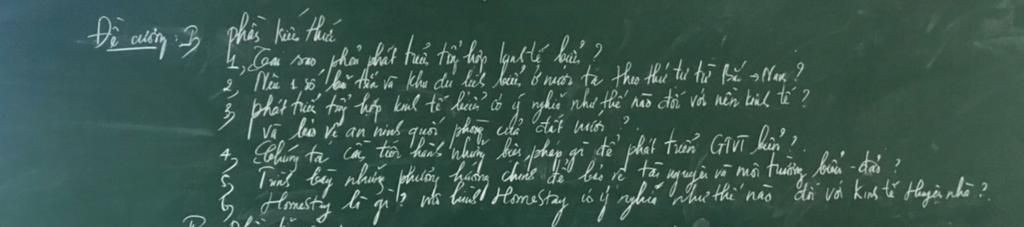 Đề cương: B phần kiến thức
1, Tại sao phải phát triển tổng hợp kinh tế biển?
2, Nêu 1 số bãi tắm và khu du lịch biển ở nước ta theo thứ tự từ Bắc → Nam?
3, phát triển tổng hợp kinh tế biển có ý nghĩa như thế nào đối với nền kinh tế?
và bảo vệ an ninh quốc phòng của đất nước?
4, Chúng ta cần tiến hành những biện pháp gì để phát triển GTVT biển?
5, Trình bày những phương hướng chính để bảo vệ tài nguyên và môi trường biển - đảo?
6, Homestay là gì? mô hình Homestay có ý nghĩa như thế nào đối với kinh tế huyện nhà?